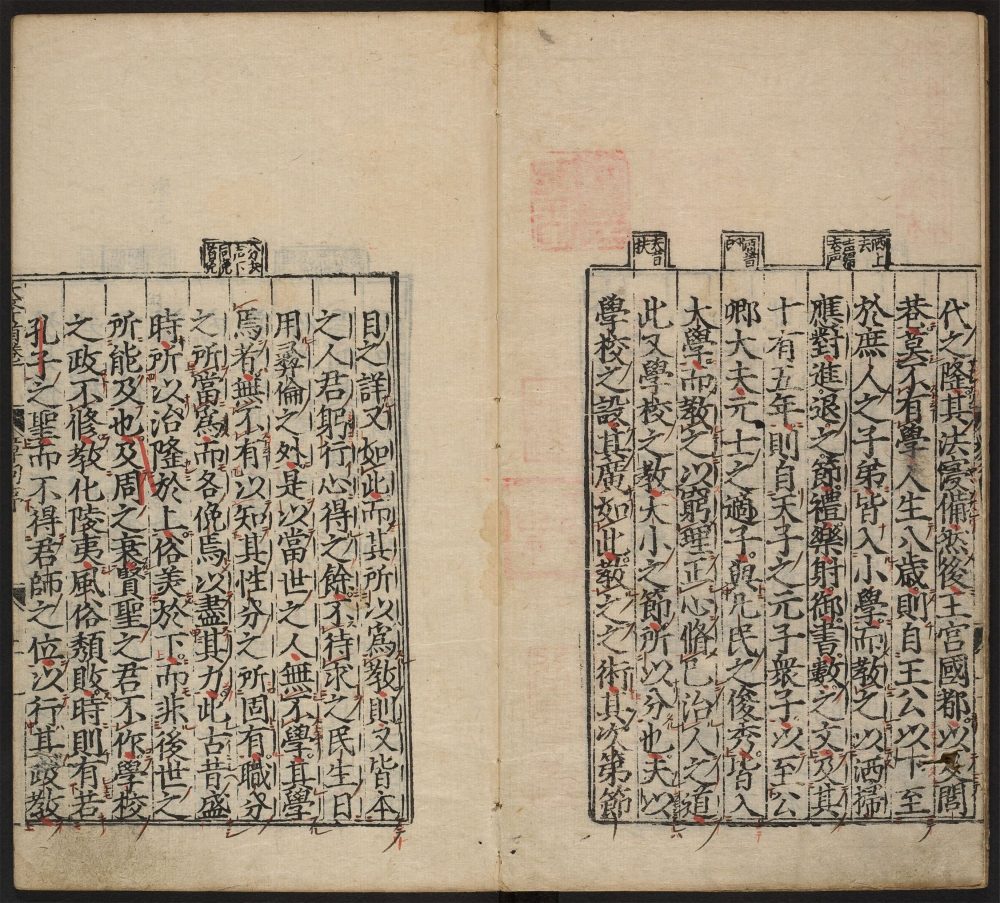 洒上
去声
代之隆其法寖備然後王宮國都以及閭
巷莫不有學人生八歲則自王公以下至
於庶人之子弟皆入小學而教之以洒掃
應對進退之節禮樂射御書數之文及其
十有五年則自天子之元子衆子以至公
卿大夫元士之適子與凡民之俊秀皆入
大學而教之以窮理正心脩己治人之道
此又學校之教大小之節所以分也夫以
學校之設其廣如此教之之術其次第節
目之詳又如此而其所以爲教則又皆本
之人君躬行心得之餘不待求之民生日
用彛倫之外是以當世之人無不學其學
焉者無不有以知其性分之所固有職分
之所當爲而各俛焉以盡其力此古昔盛
時所以治隆於上俗美於下而非後世之
所能及也及周之衰賢聖之君不作學校
之政不修教化陵夷風俗頽敗時則有若
孔子之聖而不得君師之位以行其政教